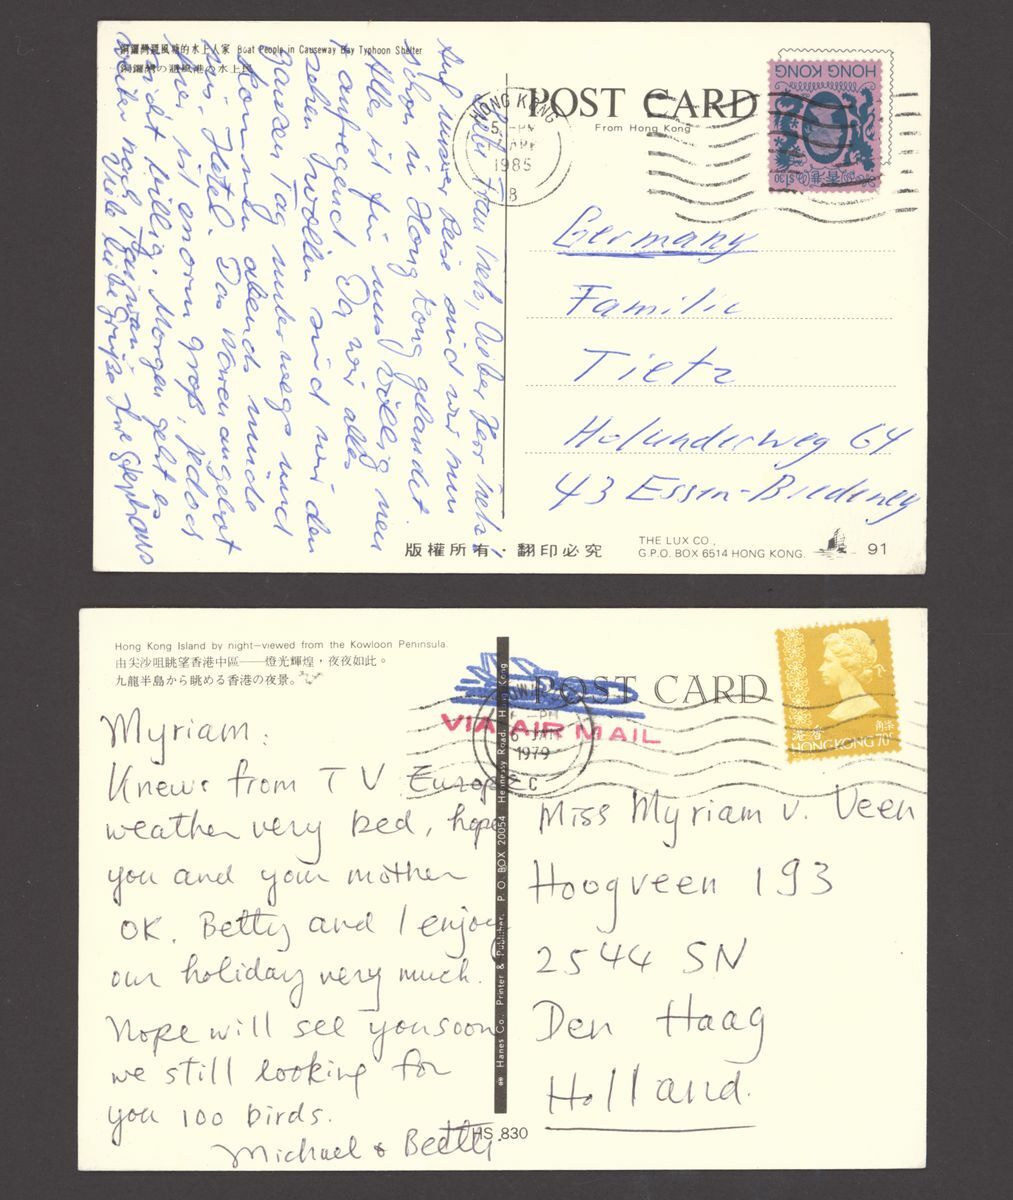 銅鑼灣避風塘的水上人家 Boat People in Causeway Bay Typhoon Shelter
銅鑼灣の避風港の水上民
POST CARD
From Hong Kong
HONG KONG
5 - PM
1985
HONG KONG
香港
$1.30
Auf unserer Reise sind wir nun
schon in Hong Kong gelandet.
Alles ist für uns völlig neu
+ aufregend. Da wir alles
sehen wollen sind wir den
ganzen Tag unterwegs und
kommen abends müde
ins Hotel. Das Warenangebot
hier ist enorm groß, jedoch
nicht billig. Morgen geht es
weiter nach Taiwan.
Viele liebe Grüße Ihre Stephans
Germany
Familie
Tietz
Holunderweg 64
43 Essen-Bredeney
版權所有・翻印必究
THE LUX CO.,
G.P.O. BOX 6514 HONG KONG.
91
Hong Kong Island by night—viewed from the Kowloon Peninsula.
由尖沙咀眺望香港中區——燈光輝煌，夜夜如此。
九龍半島から眺める香港の夜景。
POST CARD
VIA AIR MAIL
1979
C
香港
HONG KONG 70¢
Myriam:
Knews from TV Europe
weather very bed, hope
you and your mother
OK. Betty and I enjoy
our holiday very much.
Hope will see you soon
we still looking for
you 100 birds.
Michael & Betty.
Miss Myriam v. Veen
Hoogveen 193
2544 SN
Den Haag
Holland.
Hanes Co., Printer & Publisher, P. O. BOX 20054 Hennessy Road, Hong Kong
HS 830